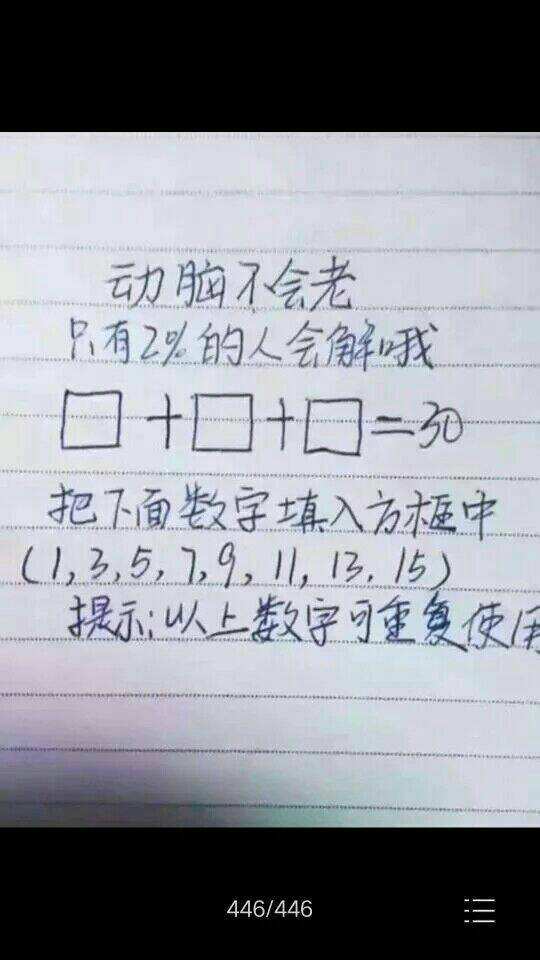 动脑不会老
只有2%的人会解哦
□+□+□=30
把下面数字填入方框中
(1,3,5,7,9,11,13,15)
提示:以上数字可重复使用
446/446